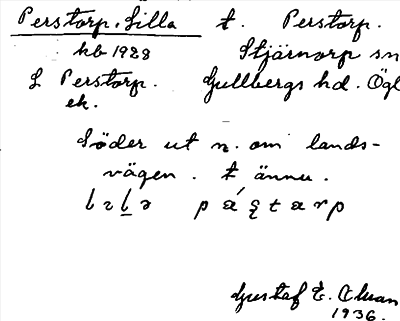 Perstorp, Lilla t. Perstorp.
hb 1928 Stjärnorp sn
L Perstorp. Gullbergs hd. Ögl
ek.
Söder ut n. om lands-
vägen. t ännu.
Gustaf E.
1936.